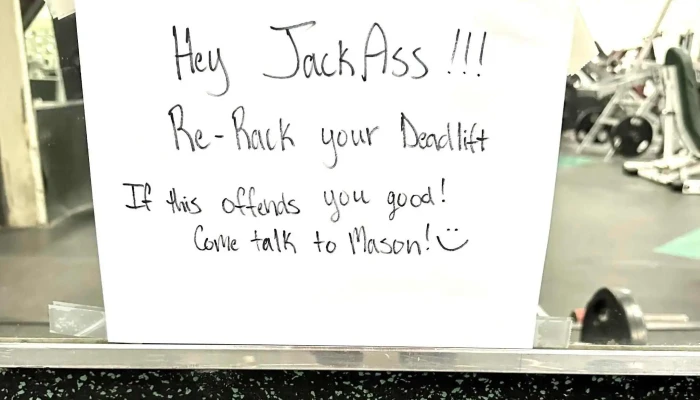 Hey JackAss!!!
Re-Rack your Deadlift
If this offends you good!
Come talk to Mason! :)